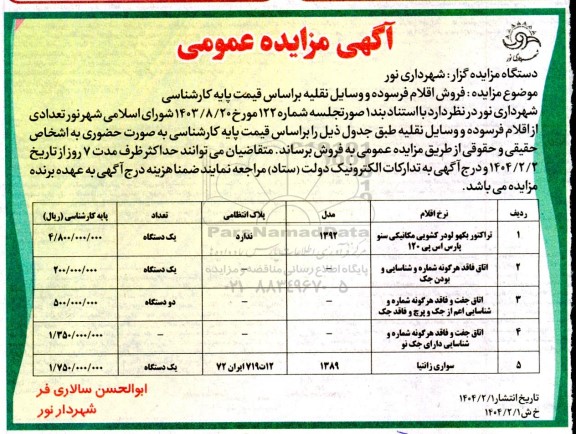 آگهی مزایده عمومی
شهرداری نور
دستگاه مزایده گزار: شهرداری نور
موضوع مزایده: فروش اقلام فرسوده و وسایل نقلیه براساس قیمت پایه کارشناسی
شهرداری نور در نظر دارد با استناد بند ۱ صورتجلسه شماره ۱۲۲ مورخ ۱۴۰۳/۸/۲۰ شورای اسلامی شهر نور تعدادی
از اقلام فرسوده و وسایل نقلیه طبق جدول ذیل را براساس قیمت پایه کارشناسی به صورت حضوری به اشخاص
حقیقی و حقوقی از طریق مزایده عمومی به فروش برساند. متقاضیان می توانند حداکثر ظرف مدت ۷ روز از تاریخ
۱۴۰۴/۲/۲ و درج آگهی به تدارکات الکترونیک دولت (ستاد) مراجعه نمایند ضمنا هزینه درج آگهی به عهده برنده
مزایده می باشد.
ردیف نرخ اقلام مدل پلاک انتظامی تعداد پایه کارشناسی (ریال)
۱ تراکتور بکهو لودر کشویی مکانیکی سنو پارس اس پی ۱۲۰ ۱۳۹۲ ندارد یک دستگاه ۴/۸۰۰/۰۰۰/۰۰۰
۲ اتاق فاقد هرگونه شماره و شناسایی و بودن جک – – یک دستگاه ۲۰۰/۰۰۰/۰۰۰
۳ اتاق جفت و فاقد هرگونه شماره و شناسایی اعم از جک و پرچ و فاقد جک – – دو دستگاه ۵۰۰/۰۰۰/۰۰۰
۴ اتاق جفت و فاقد هرگونه شماره و شناسایی دارای جک نو – – – ۱/۳۵۰/۰۰۰/۰۰۰
۵ سواری زانتیا ۱۳۸۹ ۱۲ت۷۱۹ ایران ۷۲ یک دستگاه ۱/۷۵۰/۰۰۰/۰۰۰
ParsNamadData
پایگاه اطلاع رسانی مناقصه و مزایده
۰۲۱-۸۸۳۴۹۶۷۰-۵
تاریخ انتشار ۱۴۰۴/۲/۱
خ ش ۱۴۰۴/۲/۱
ابوالحسن سالاری فر
شهردار نور